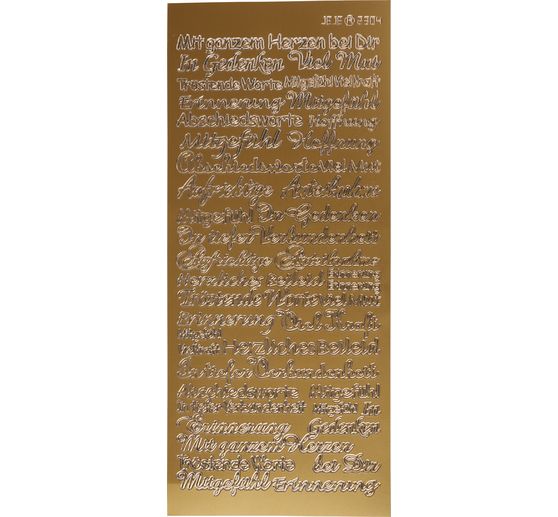 JEJE ® 8304
Mit ganzem Herzen bei Dir
In Gedenken Viel Mut
Tröstende Worte Mitgefühl Viel Kraft
Erinnerung Mitgefühl
Abschiedsworte Hoffnung
Mitgefühl Hoffnung
Abschiedsworte Viel Mut
Aufrichtige Anteilnahme
Mitgefühl In Gedenken
In tiefer Verbundenheit
Aufrichtige Anteilnahme
Herzliches Beileid Erinnerung
Erinnerung
Tröstende Worte Viel Mut
Erinnerung Viel Kraft
Herzliches Beileid
In tiefer Verbundenheit
Abschiedsworte Mitgefühl
In tiefer Verbundenheit In
Erinnerung Gedenken
Mit ganzem Herzen
Tröstende Worte bei Dir
Mitgefühl Erinnerung